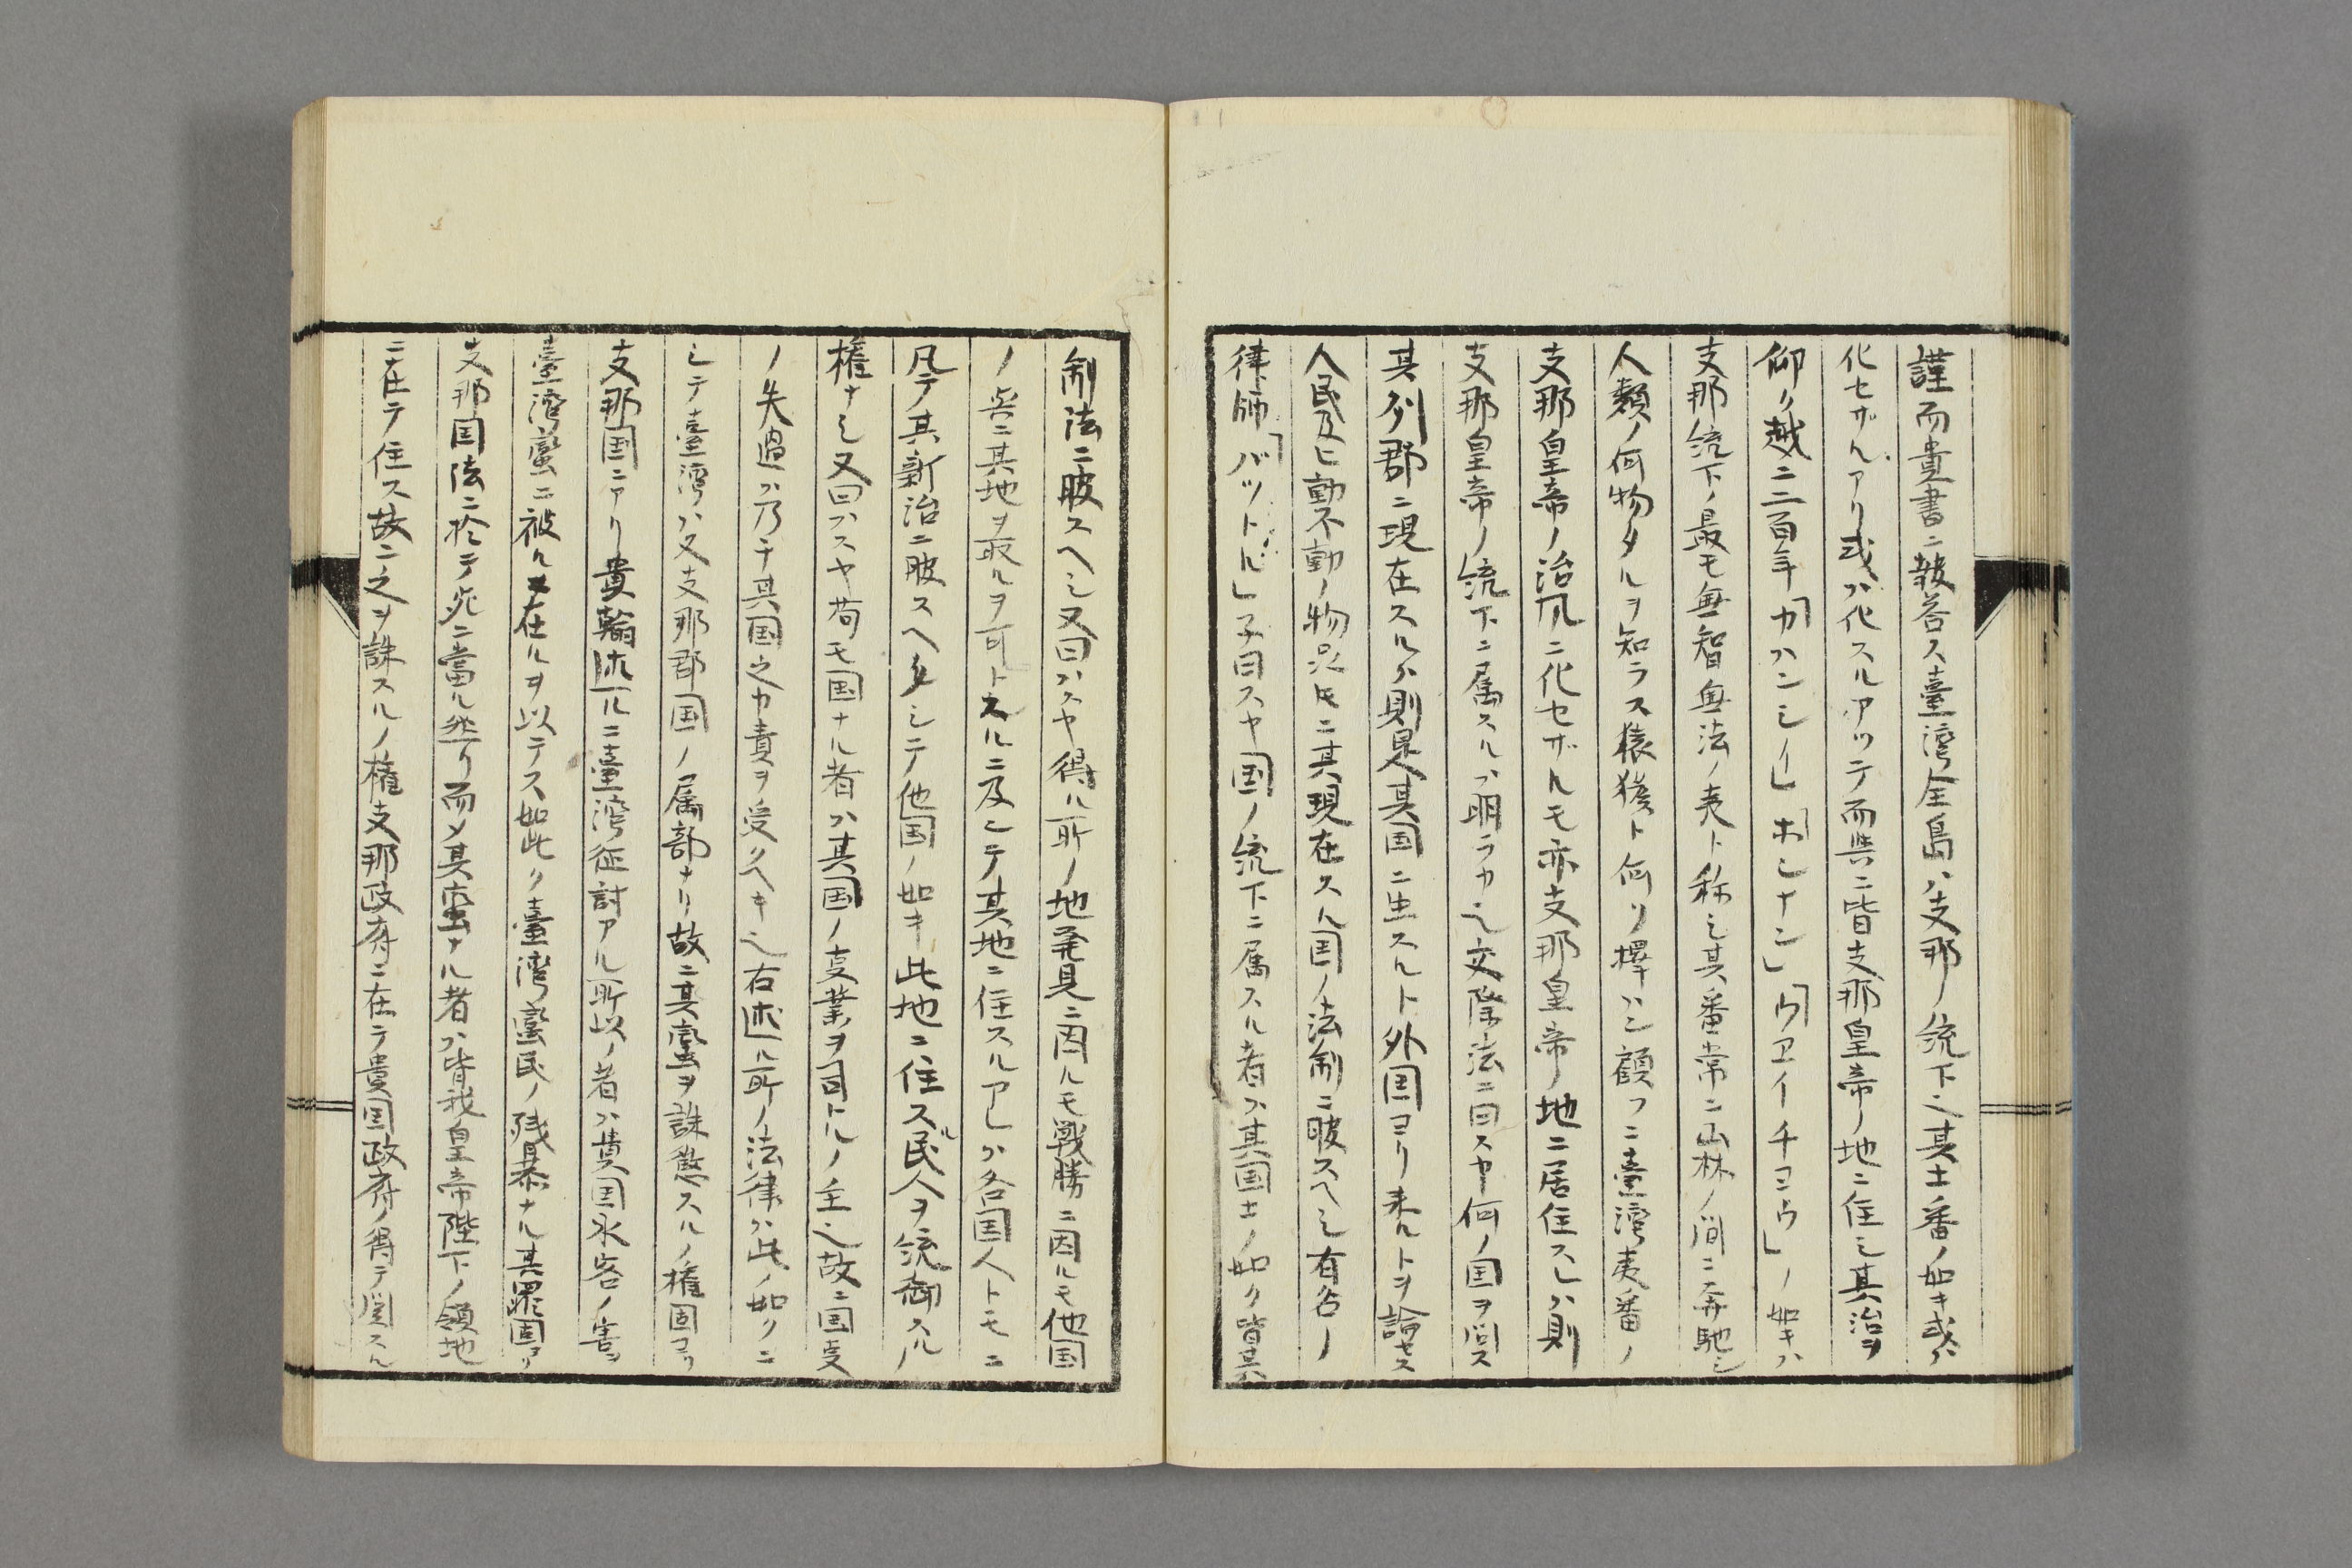 謹而貴書ニ報答ス臺湾全島ハ支那ノ統下ニ其土番ノ如キ或ハ
化セザルアリ或ハ化スルアツテ而共ニ皆支那皇帝ノ地ニ住シ其治ヲ
仰ク越ニ二百年「カハンシイ」「ホシナン」「ウエイチヨウ」ノ如キハ
支那統下ノ最モ無智無法ノ夷ト称シ其番常ニ山林ノ間ニ奔馳シ
人類ノ何物タルヲ知ラス猿猴ト何ソ擇ハン顧フニ臺湾夷番ノ
支那皇帝ノ治凡ニ化セザルモ亦支那皇帝ノ地ニ居住スレハ則
支那皇帝ノ統下ニ属スルハ明ラカ也交際法ニ曰スヤ何ノ国ヲ問ス
其列郡ニ現在スルハ則是其国ニ生スルト外国ヨリ来ルトヲ論セス
人民及ヒ動不動ノ物品氏ニ其現在スル国ノ法制ニ服スヘシ有名ノ
律師「バットル」子曰スヤ国ノ統下ニ属スル者ハ其国士ノ如ク皆其
制法ニ服スヘシ又曰ハスヤ得ル所ノ地発見ニ因ルモ戦勝ニ因ルモ他国
ノ其地ヲ取ルヲ可トスルニ及ンテ其地ニ住スルアレハ各国人トモニ
凡テ其新治ニ服スヘクシテ他国ノ如キ此地ニ住ス民人ヲ統御スルノ
権ナシ又曰ハスヤ苟モ国ナル者ハ其国ノ支業ヲ司トルノ主也故ニ国支
ノ失過ハ乃チ其国之カ責ヲ受クヘキ也右述ル所ノ法律ハ此ノ如クニ
シテ臺湾ハ又支那郡国ノ属部ナリ故ニ其蛮ヲ誅懲スルノ権固ヨリ
支那国ニアリ貴翰述ルニ臺湾征討アル所以ノ者ハ貴国氷客ノ害ヲ
臺湾蛮ニ被ルニ在ルヲ以テス如此ク臺湾蛮民ノ残暴ナル其罪固ヨリ
支那国法ニ於テ死ニ當ル然リ而メ其蛮ナル者ハ皆我皇帝陛下ノ領地
ニ在テ住ス故ニ之ヲ誅スルノ権支那政府ニ在テ貴国政府ノ得テ関スル